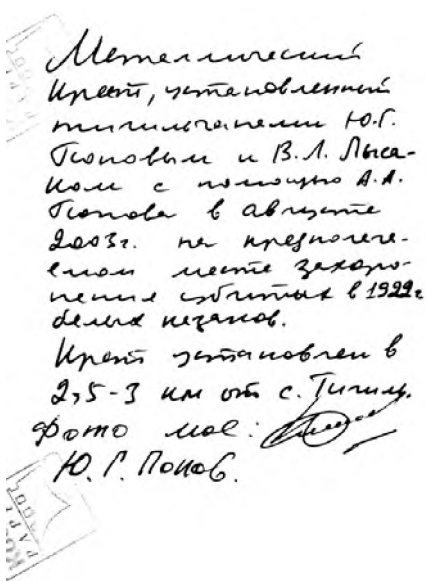 Металлический
крест, установленный
тигильчанами Ю.Г.
Поповым и В.Л. Лыса-
ком с помощью А.А.
Попова в августе
2003г. на предполага-
емом месте захоро-
нения убитых в 1922г
белых казаков.
Крест установлен в
2,5-3 км от с. Тигиль.
Фото мое:
Ю.Г. Попов.